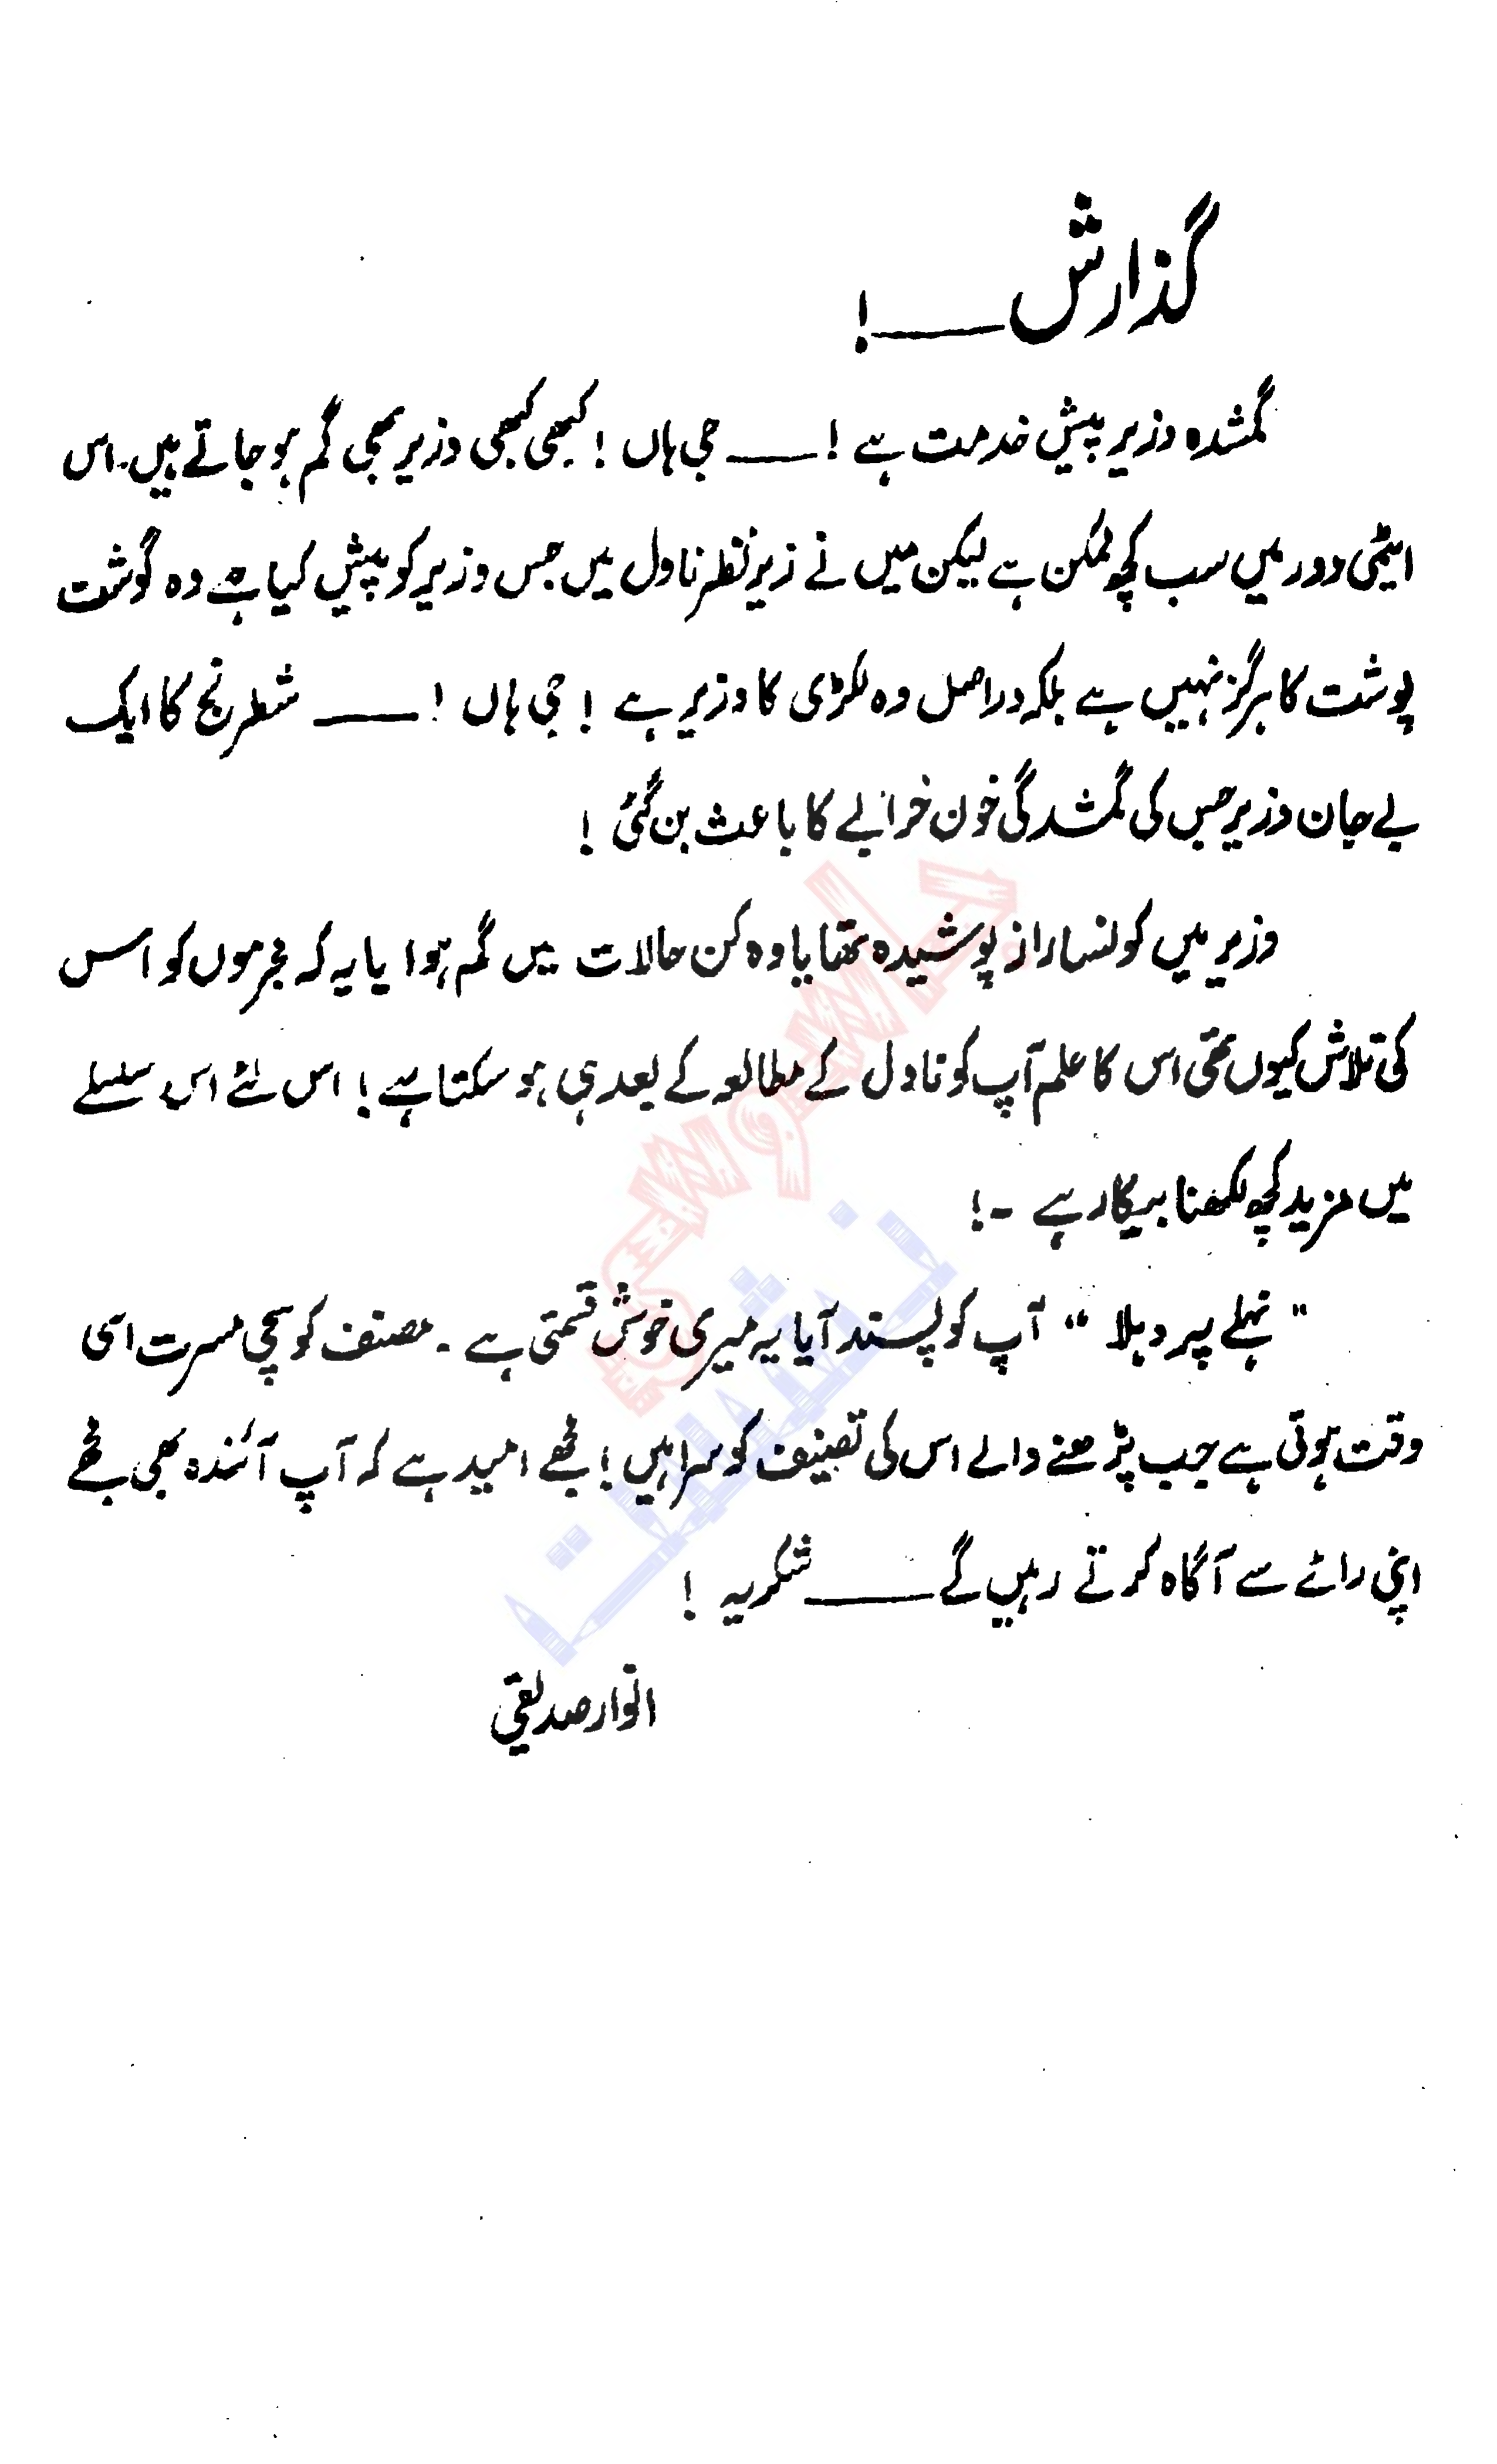 گذارش ــــــ !
گمشدہ وزیر پیش خدمت ہے ! ــــــ جی ہاں ! کبھی کبھی وزیر بھی گم ہو جاتے ہیں۔ اس
ایٹمی دور میں سب کچھ ممکن ہے لیکن میں نے زیر نظر ناول میں جس وزیر کو پیش کیا ہے وہ گوشت
پوشت کا ہرگز نہیں ہے بلکہ دراصل وہ لکڑی کا وزیر ہے ! جی ہاں ! ــــــ شطرنج کا ایک
بے جان وزیر جس کی گمشدگی خون خرابے کا باعث بن گئی !
وزیر میں کونسا راز پوشیدہ تھا یا وہ کن حالات میں گم ہوا یا یہ کہ مجرموں کو اس
کی تلاش کیوں تھی اس کا علم آپ کو ناول کے مطالعہ کے بعد ہی ہو سکتا ہے ! اس لئے اس سلسلے
میں مزید کچھ لکھنا بیکار ہے ۔!
" نہلے پر دہلا " آپ کو پسند آیا یہ میری خوش قسمتی ہے ۔ مصنف کو سچی مسرت اسی
وقت ہوتی ہے جب پڑھنے والے اس کی تصنیف کو سراہیں ! مجھے امید ہے کہ آپ آئندہ بھی مجھے
اپنی رائے سے آگاہ کرتے رہیں گے ــــــ شکریہ !
انوار صدیقی